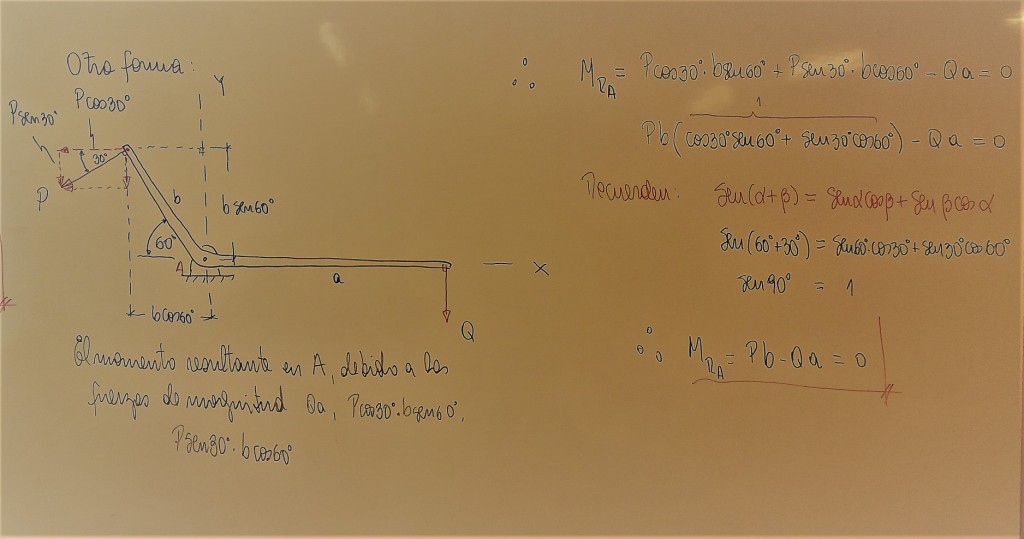 Otra forma:
Y
Pcos30°
Psen30°
30°
P
b
b sen60°
60°
A
a
x
bcos60°
Q
El momento resultante en A, debido a las
fuerzas de magnitud Qa, Pcos30°·bsen60°,
Psen30°·bcos60°
∴ M_RA = Pcos30°·bsen60° + Psen30°·bcos60° - Qa = 0
1
Pb(cos30°sen60° + sen30°cos60°) - Qa = 0
Recuerden: sen(α+β) = senαcosβ + senβcosα
sen(60°+30°) = sen60°cos30° + sen30°cos60°
sen90° = 1
∴ M_RA = Pb - Qa = 0